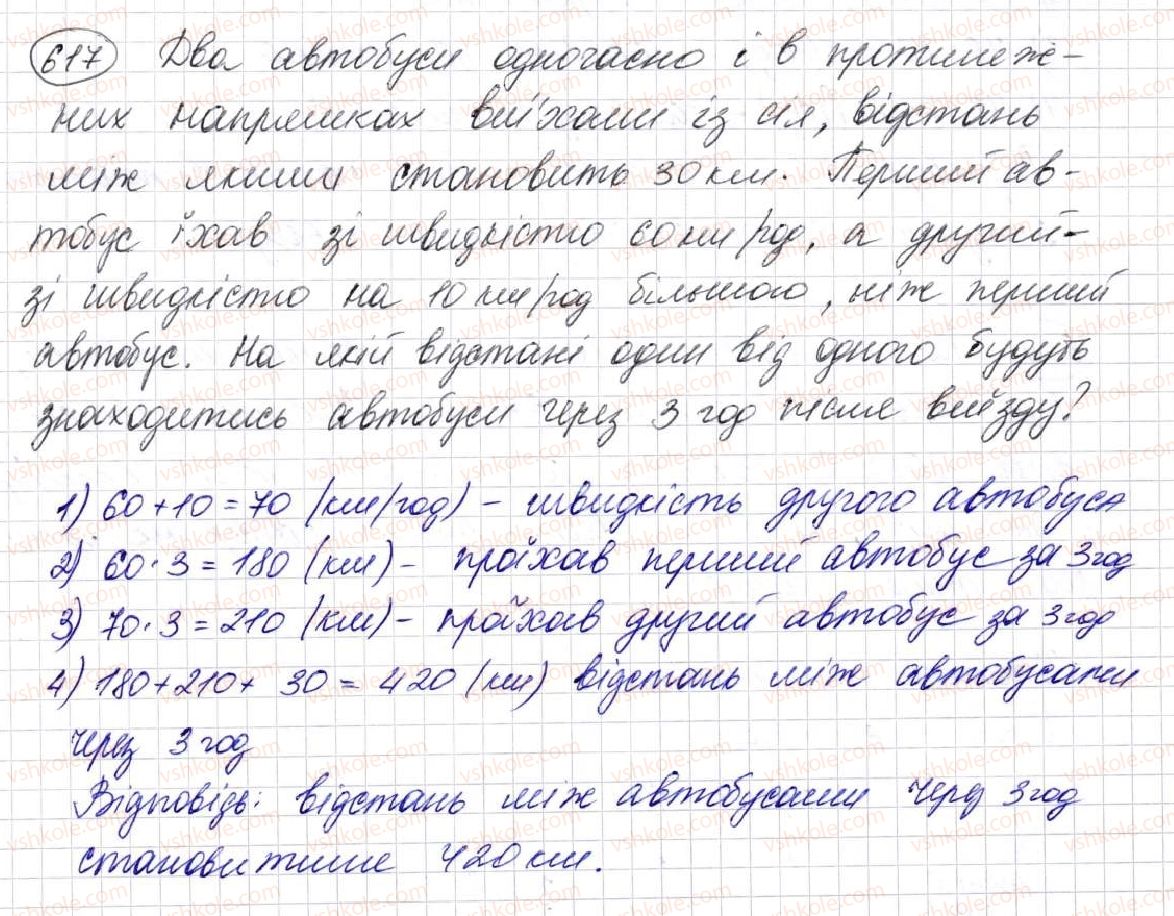 617 Два автобуси одночасно і в протилеж-
них напрямках виїхали із сіл, відстань
між якими становить 30 км. Перший ав-
тобус їхав зі швидкістю 60 км/год, а другий-
зі швидкістю на 10 км/год більшою, ніж перший
автобус. На якій відстані один від одного будуть
знаходитись автобуси через 3 год після виїзду?
1) 60+10=70 (км/год) - швидкість другого автобуса
2) 60·3=180 (км) - проїхав перший автобус за 3 год
3) 70·3=210 (км) - проїхав другий автобус за 3 год
4) 180+210+ 30 = 420 (км) відстань між автобусами
через 3 год
Відповідь: відстань між автобусами через 3 год
становитиме 420 км.